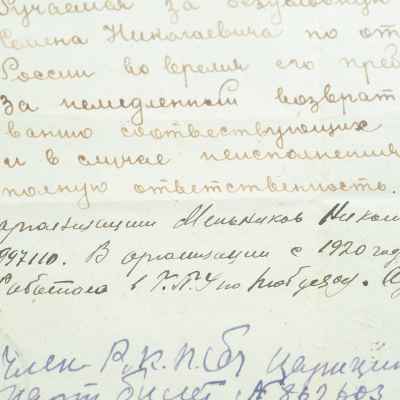 ручаемся за безусловную
Семена Николаевича по от
России во время его преб
За немедленный возврат
ванию соотвествующих
и в случае неисполнения
полную ответственность.
организации Мельников Никол
997110. В организации с 1920 год
Работала в
Член Р.К.П.(б) Царицин
парт билет №